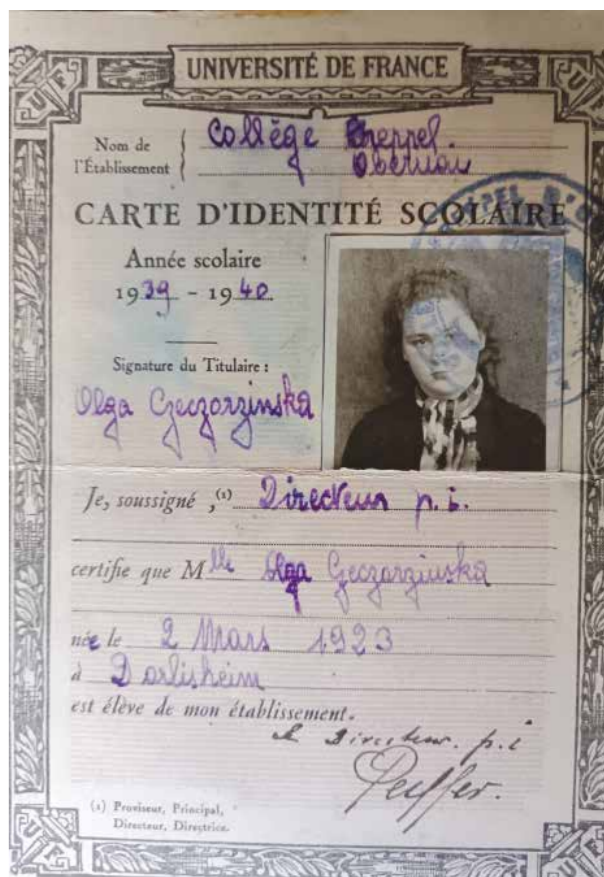 UNIVERSITÉ DE FRANCE
Nom de l'Établissement
Collège Freppel
Obernai
CARTE D'IDENTITÉ SCOLAIRE
Année scolaire
1939 - 1940
Signature du Titulaire :
Olga Geczorzinska
Je, soussigné ,(1) Directeur p. i.
certifie que Mlle Olga Geczorzinska
née le 2 Mars 1923
à Dorlisheim
est élève de mon établissement.
le Directeur. p. i
(1) Proviseur, Principal,
Directeur, Directrice.